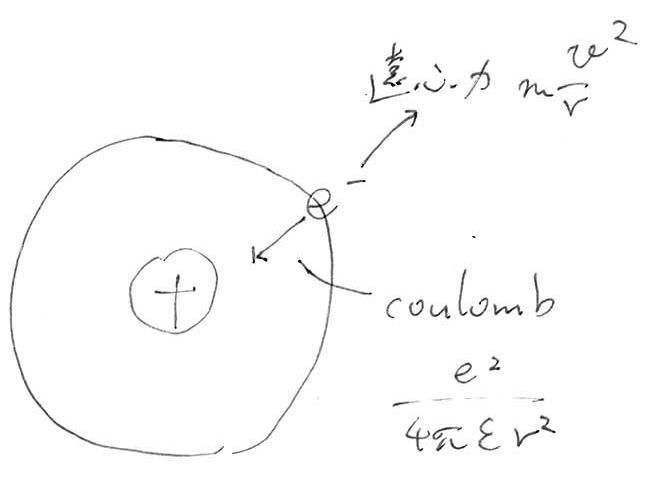 遠心力 m v²/r
e⁻
+
coulomb
e²
4πεr²